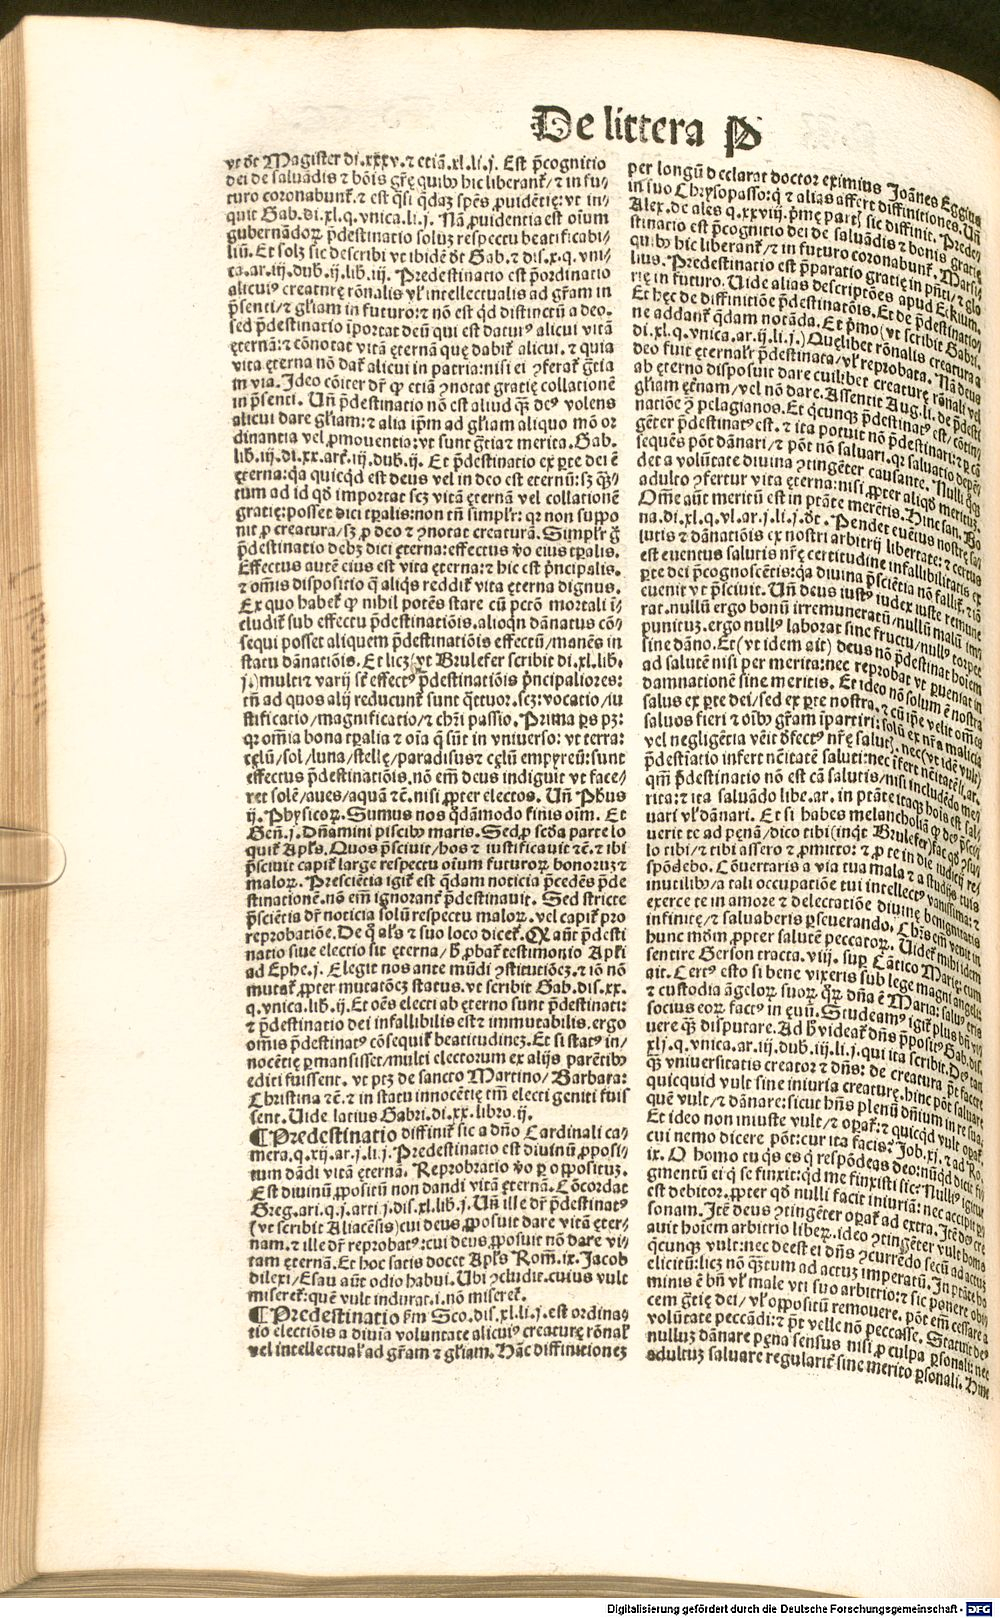 De littera P
vt dt Magister di.xxxv.⁊ etiã.xl.li.j. Est p̃cognitio
dei de saluãdis ⁊ bõis gr̃ę quibꝰ hic liberant̃/⁊ in fu/
turo coronabunt̃.⁊ est q̃si q̃dã sp̃es ꝓuidẽtię: vt in/
quit Gab.di.xl.q.vnica.li.j. Nã ꝓuidentia est oĩum
gubernãdoꝝ p̃destinatio soluꝫ respectu beatificabi/
liũ. Et solꝫ sic describi vt ibidẽ dt Gab.⁊ dis.x.q.vni/
ca.ar.iij.dub.ij.lib.iij. Predestinatio est p̃ordinatio
alicuiꝰ creaturę rõnalis vl̕ intellectualis ad gr̃am in
p̃senti/⁊ gl̕iam in futuro:⁊ nõ est qd̕ distinctũ a deo.
sed p̃destinatio ĩportat deũ qui est daturꝰ alicui vitã
ęternã:⁊ cõnotat vitã ęternã quę dabit̃ alicui.⁊ quia
vita ęterna nõ dat̃ alicui in patria:nisi ei ꝯferat̃ gr̃tia
in via. Ideo cõiter dr̃ ꝙ etiã ꝯnotat gratię collationẽ
in p̃senti. Uñ p̃destinatio nõ est aliud q̃ꝫ deꝰ volens
alicui dare gl̕iam:⁊ alia ip̃m ad gl̕iam aliquo mõ or
dinantia vel ꝓmouentia:vt sunt gr̃tia⁊ merita. Gab.
lib.iij.di.xx.art̃.iij.dub.ij. Et p̃destinatio ex ꝑte dei ẽ
ęterna:q̃a quicq̃d est deus vel in deo est eternũ:sꝫ q̃ꝫ/
tum ad id qd̕ importat scꝫ vitã ęternã vel collationẽ
gratię:posset dici tꝑalis:non tñ simplr̃: qꝛ non suppo
nit ꝓ creatura/sꝫ ꝓ deo ⁊ ꝯnotat creaturã. Simplr̃ g̃
p̃destinatio debꝫ dici ęterna:effectus ṽo eius tꝑalis.
Effectus autẽ eius est vita ęterna:⁊ hic est p̃ncipalis.
⁊ om̃is dispositio q̃ aliq̃s reddit̃ vita ęterna dignus.
Ex quo habet̃ ꝙ nihil potẽs stare cũ pctõ mortali ĩ/
cludit̃ sub effectu p̃destinatiõis.alioqñ dãnatus cõ/
sequi posset aliquem p̃destinatiõis effectũ/manẽs in
statu dãnatiõis. Et licꝫ(vt Brulefer scribit di.xl.lib.
j.)multi⁊ varij sc̃ effectꝰ p̃destinatiõis p̃ncipaliores:
tñ ad quos alij reducunt̃ sunt q̃ttuor.scꝫ:vocatio/iu
stificatio/magnificatio/⁊ chr̃i passio. Prima ꝑs pꝫ:
qꝛ om̃ia bona tꝑalia ⁊ oĩa q̃ sũt in vniuerso: vt terra:
cęlũ/sol/luna/stellę/paradisus⁊ cęlũ empyreũ:sunt
effectus p̃destinatiõis.nõ em̃ deus indiguit vt face/
ret solẽ/aues/aquã ⁊c̃.nisi ꝓpter electos. Uñ Ph̃us
ij. Physicoꝝ. Sumus nos q̃dãmodo finis oĩm. Et
Geñ.j. Dñamini piscibꝰ maris. Sed ꝓ scd̃a parte lo
quit̃ Apl̕s. Quos p̃sciuit/hos ⁊ iustificauit ⁊c̃.⁊ ibi
p̃sciuit capit̃ large respectu oĩum futuroꝝ bonorum⁊
maloꝝ. Presciẽtia igit̃ est q̃dam noticia p̃cedẽs p̃de
stinationẽ.nõ em̃ ignorant̃ p̃destinauit. Sed stricte
p̃sciẽtia dr̃ noticia solũ respectu maloꝝ.vel capit̃ pro
reprobatiõe. De q̃ al̕s ⁊ suo loco dicet̃. Q aũt p̃desti
natio siue electio sit ęterna/h̃ ꝓbat̃ testimonio Apl̕i
ad Ephe.j. Elegit nos ante mũdi ꝯstitutiõeꝫ.⁊ iõ nõ
mutat̃ ꝓpter mutatõeꝫ status.vt scribit Gab.dis.xx.
q.vnica.lib.ij. Et oẽs electi ab ęterno sunt p̃destinati:
⁊ p̃destinatio dei infallibilis est⁊ immutabilis.ergo
om̃is p̃destinatꝰ cõsequit̃ beatitudineꝫ. Et si statꝰ in/
nocẽtię ꝑmansisset/multi electorum ex alijs parẽtibꝰ
editi fuissent. vt ptꝫ de sancto Martino/Barbara:
Christina ⁊c̃.⁊ in statu innocẽtię tm̃ electi geniti fuis
sent. Uide latius Gabri.di.xx.libro.ij.
¶Predestinatio diffinit̃ sic a dño Cardinali ca/
mera.q.xij.ar.j.li.j. Predestinatio est diuinũ ꝓposi/
tum dãdi vitã ęternã. Reprobatio ṽo ꝑ oppositus.
Est diuinũ ꝓpositũ non dandi vitã ęternã. Cõcordat
Greg.ari.q.j.arti.j.dis.xl.lib.j. Uñ ille dr̃ p̃destinatꝰ
(vt scribit Aliacẽsis)cui deus ꝓposuit dare vitã ęter/
nam.⁊ ille dr̃ reprobatꝰ:cui deus ꝓposuit nõ dare vi/
tam ęternã. Et hoc satis docet Apl̕s Rom̃.ix. Jacob
dilexi/Esau aũt odio habui. Ubi ꝯcludit.cuius vult
miseret̃:quẽ vult indurat.i.nõ miseret̃.
¶Predestinatio fm̃ Sco.dis.xl.li.j.est ordinat/
tio electiõis a diuĩa voluntate alicuiꝰ creaturę rõnal̕
vel intellectual̕ ad gr̃am ⁊ gl̕iam. Hãc diffinitioneꝫ
per longũ declarat doctor eximius Joãnes Eggius
in suo Chrysopasso:q̃ ⁊ alias affert diffinitiones. Uñ
Alex.de ales q.xxviij.p̃mę part̃ sic diffinit. Predesti
stinatio est p̃cognitio dei de saluãdis ⁊ bonis gratię
quibꝰ hic liberant̃/⁊ in futuro coronabunt̃. Marsi/
lius. Predestinatio est p̃paratio gratię in p̃nti/⁊ glo
rię in futuro. Uide alias descriptões apud Eckium.
Et hęc de diffinitiõe p̃destinatõis. Et de p̃destinatiõ
ne addant̃ q̃dam notãda. Et p̃mo(vt scribit Gabri.
di.xl.q.vnica.ar.ij.li.j.)Quęlibet rõnalis creatura a
deo fuit eternal̕r p̃destinata/vl̕ reprobata. Nã deus
ab ęterno disposuit dare cuilibet creaturę rõnali vel
gl̕iam ęt̃nam/vel nõ dare. Assentit Aug.li.de p̃desti
natiõe ꝯ pelagianos. Et q̃cunqꝫ p̃destinatꝰ est/cõtin/
gẽter p̃destinatꝰ est.⁊ ita potuit nõ p̃destinari:⁊ ꝑ cõ
sequẽs põt dãnari/⁊ põt nõ saluari.qꝛ saluatio depẽ/
det a volũtate diuina ꝯtingẽter causante. Nulli q̃qꝫ
adulto ꝯfertur vita ęterna:nisi ꝓpter aliqd̕ meritũ.
Om̃e aũt meritũ est in ptãte merẽtis. Hinc san. Bo
na.di.xl.q.vl.ar.j.li.j.dt. Pendet euẽtus nostrę sal
lutis ⁊ dãnatiõis ex nostri arbitrij libertate:⁊ certus
est euentus salutis nr̃ę certitudine infallibilitatis ex
ꝑte dei p̃cognoscẽtis:q̃a diuina p̃sciẽtia nõ fallit̃.⁊ iõ
euenit vt p̃sciuit. Uñ deus iustꝰ iudex iuste remune
rat.nullũ ergo bonũ irremuneratũ/nullũ malũ im
punituꝫ.ergo nullꝰ laborat sine fructu/nullꝰ torpet
sine dãno. Et(vt idem ait) deus nõ p̃destinat hoĩem
ad salutẽ nisi per merita:nec reprobat vt ꝑueniat in
damnationẽ sine meritis. Et ideo nõ solum ẽ nostra
salus ex ꝑte dei/sed ex ꝑte nostra.⁊ cũ ip̃e velit om̃es
saluos fieri ⁊ oĩbꝰ gr̃am ĩpartiri:solũ ex nr̃a malicia
vel negligẽtia vẽit dfectꝰ nr̃ę salut̃.nec(vt idẽ vult)
p̃destĩatio infert necitatẽ saluti:nec ĩfert necitatẽ li.ar.
qm̃ p̃destinatio nõ est cã salutis/nisi includẽdo me
rita:⁊ ita saluãdo libe.ar. in ptãte itaqꝫ hoĩs est sal
uari vl̕ dãnari. Et si habes melancholiã ꝙ deꝰ p̃sci
uerit te ad pęnã/dico tibi(inq̃t Brulefer)fac qd̕ ꝯsu/
lo tibi/⁊ tibi assero ⁊ ꝓmitto:⁊ ꝓ te in die iudicij re/
spõdebo. Cõuertaris a via tua mala ⁊ a studijs tuis
inutilibꝰ/a tali occupatiõe tui intellectꝰ vanissima:⁊
exerce te in amore ⁊ delectatiõe diuinę benignitatis
infinitę/⁊ saluaberis ꝑseuerando. Chr̃s em̃ venit in
hunc mũdm ꝓpter salutẽ peccatoꝝ. Uidet̃ mihi idem
sentire Gerson tracta.viij.suꝑ Cãtico Marię cum
ait. Certꝰ esto si bene vixeris sub lege magni angeli
⁊ custodia ãgeloꝝ suoꝝ q̃ꝝ dña ẽ Maria: saluꝰ eris
socius eoꝝ factꝰ in ęuũ. Studeamꝰ igit̃ plus bñ vi/
uere q̃ꝫ disputare. Ad h̃ videat̃ dñs p̃positꝰ Gab.dis.
xlj.q.vnica.ar.iij.dub.iij.li.j.qui ita scribit. Deꝰ tan
q̃ꝫ vniuersitatis creator ⁊ dñs: de creatura põt facere
quicquid vult sine iniuria creaturę.hinc põt saluare
quẽ vult/⁊ dãnare:sicut hñs plenũ dñium in re sua.
Et ideo non iniuste vult/⁊ oꝑat̃:⁊ quicq̃d vult oꝑat̃.
cui nemo dicere põt:cur ita facis? Job.xj.⁊ ad Ro.
ix. O homo tu q̃s es q̃ respõdeas deo:nũq̃d dicit fi
gmentũ ei q̃ se finxit:qd̕ me finxisti sic? Nullꝰ igitur
est debitor.ꝓpter qd̕ nulli facit iniuriã: nec accipit ꝑ
sonam. Itẽ deus ꝯtingẽter oꝑat̃ ad extra. Itẽ deꝰ cre
auit hoĩem arbitrio liberꝝ.ideo ꝯtingẽter vult homo
q̃cunqꝫ vult:nec deest ei dñs ꝯcurrẽdo secũ ad actuꝫ
elicitũ:licꝫ nõ q̃ꝫtum ad actuꝫ imperatũ. In ptãte ho
minis ẽ bñ vl̕ male vti suo arbitrio:⁊ sic ponere obi/
cem gr̃tię dei/vl̕ oppositũ remouere. põt em̃ cessare a
volũtate peccãdi:⁊ p̃t velle nõ peccasse. Statuit deꝰ
nulluꝫ dãnare pęna sensus nisi ꝓ culpa ꝑsonali:nec
adultuꝫ saluare regularit̃ sine merito ꝑsonali. Hinc
Digitalisierung gefördert durch die Deutsche Forschungsgemeinschaft - DFG